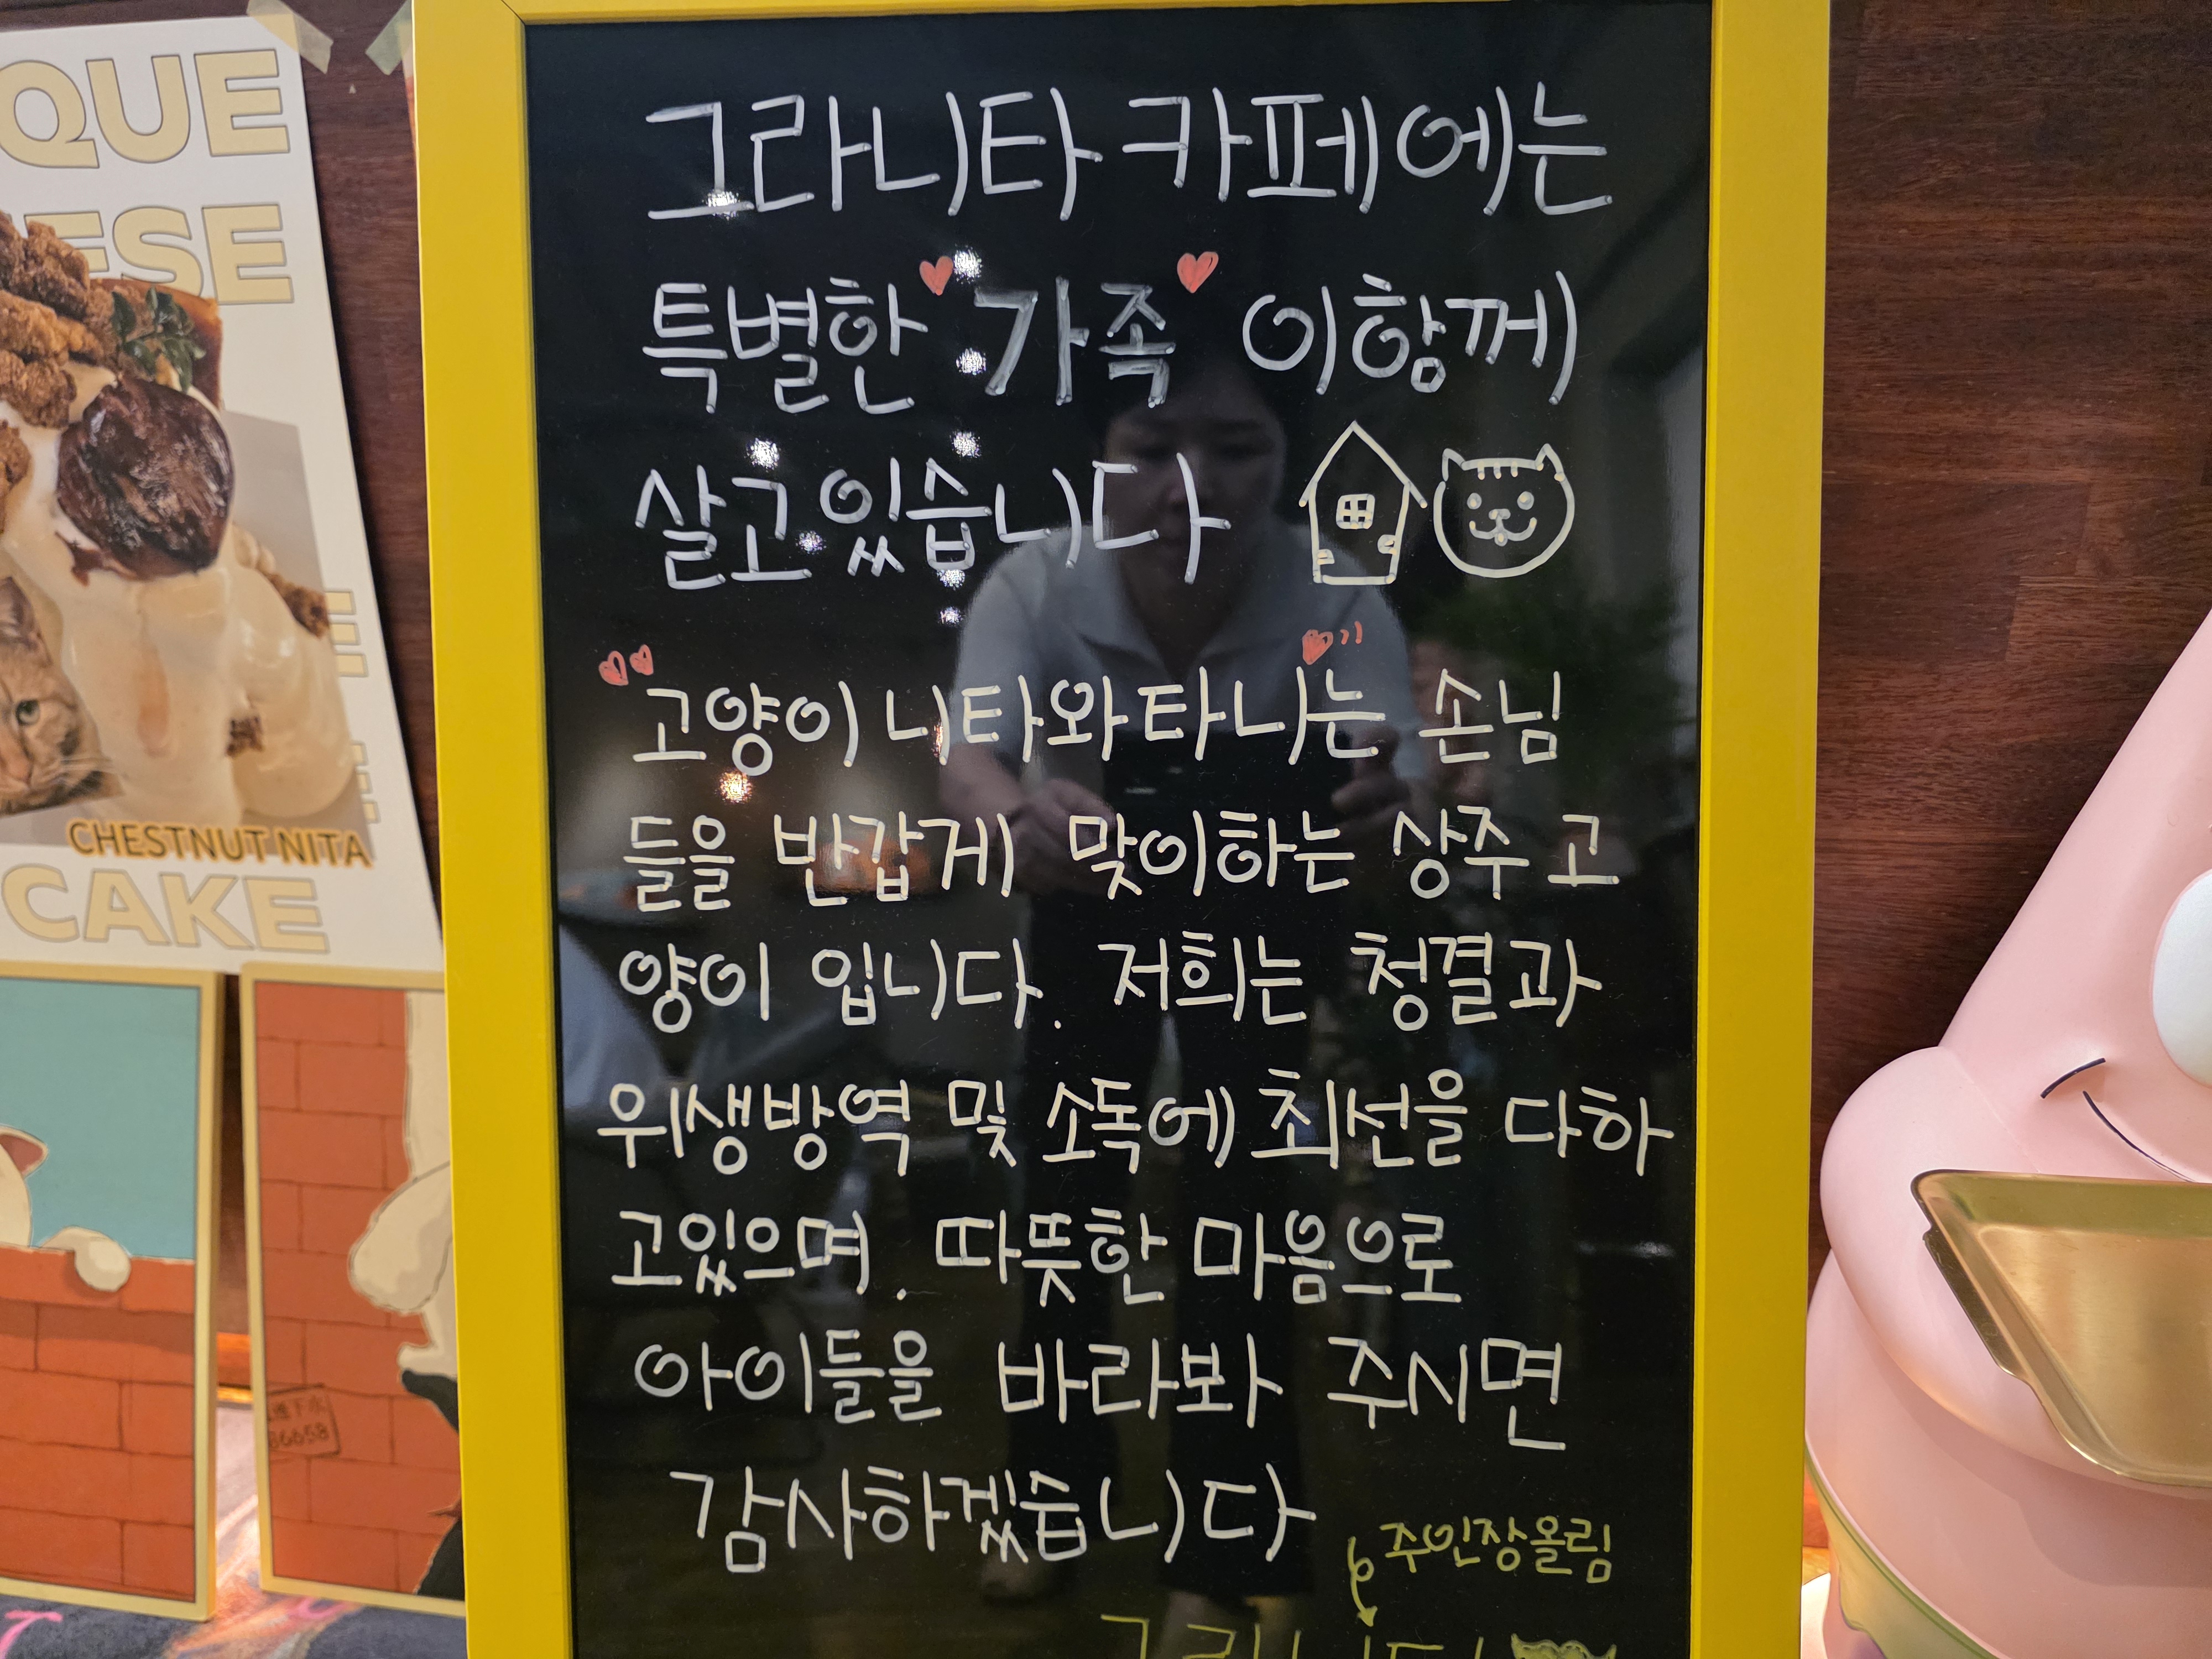 QUE
ESE
CHESTNUT NITA
CAKE
그라니타 카페에는
특별한 가족 이함께
살고있습니다
고양이 니타와타니는 손님
들을 반갑게 맞이하는 상주 고
양이 입니다. 저희는 청결과
위생방역 및 소독에 최선을 다하
고있으며. 따뜻한 마음으로
아이들을 바라봐 주시면
감사하겠습니다
주인장올림